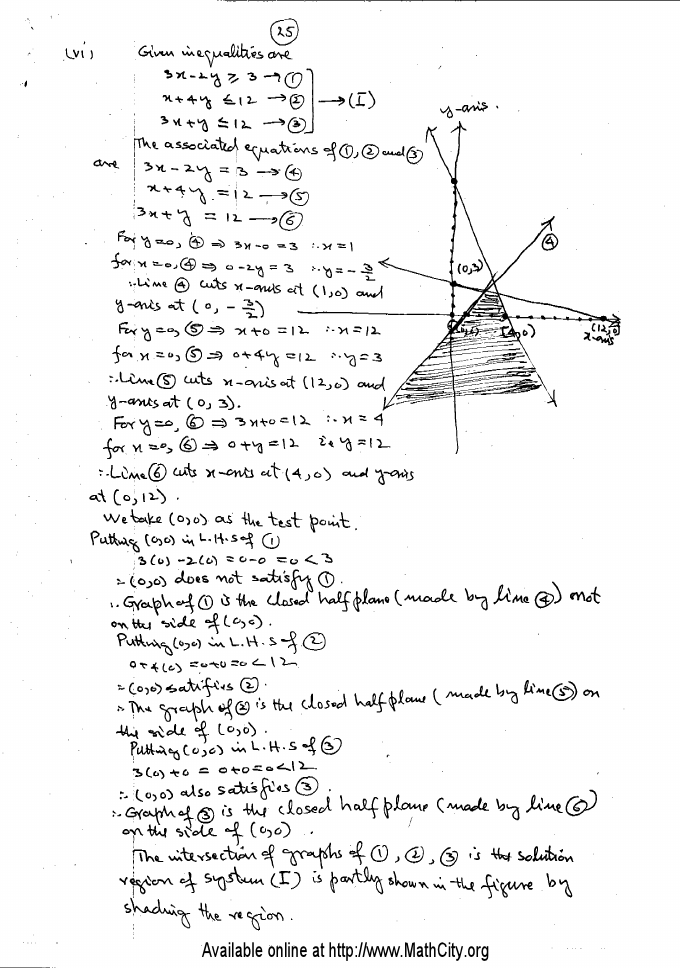 25
(vi) Given inequalities are
3x-2y ≥ 3 → ①
x+4y ≤ 12 → ② → (I)
3x+y ≤ 12 → ③
The associated equations of ①, ② and ③
are 3x-2y = 3 → ④
x+4y = 12 → ⑤
3x+y = 12 → ⑥
For y=0, ④ ⇒ 3x-0 = 3 ∴ x=1
for x=0, ④ ⇒ 0-2y = 3 ∴ y = -3/2
∴ Line ④ cuts x-axis at (1,0) and
y-axis at (0, -3/2)
For y=0, ⑤ ⇒ x+0 = 12 ∴ x=12
for x=0, ⑤ ⇒ 0+4y = 12 ∴ y=3
∴ Line ⑤ cuts x-axis at (12,0) and
y-axis at (0, 3).
For y=0, ⑥ ⇒ 3x+0 = 12 ∴ x = 4
for x=0, ⑥ ⇒ 0+y = 12 i.e y=12
∴ Line ⑥ cuts x-axis at (4,0) and y-axis
at (0,12).
y-axis.
④
(0,3)
(4,0)
(12,0)
x-axis
We take (0,0) as the test point.
Putting (0,0) in L.H.S of ①
3(0) -2(0) = 0-0 = 0 < 3
∴ (0,0) does not satisfy ①.
∴ Graph of ① is the closed half plane (made by line ④) not
on the side of (0,0).
Putting (0,0) in L.H.S of ②
0+4(0) = 0+0 = 0 < 12
∴ (0,0) satisfies ②.
∴ The graph of ② is the closed half plane (made by line ⑤) on
the side of (0,0).
Putting (0,0) in L.H.S of ③
3(0)+0 = 0+0 = 0 < 12
∴ (0,0) also satisfies ③.
∴ Graph of ③ is the closed half plane (made by line ⑥)
on the side of (0,0).
The intersection of graphs of ①, ②, ③ is the solution
region of system (I) is partly shown in the figure by
shading the region.
Available online at http://www.MathCity.org